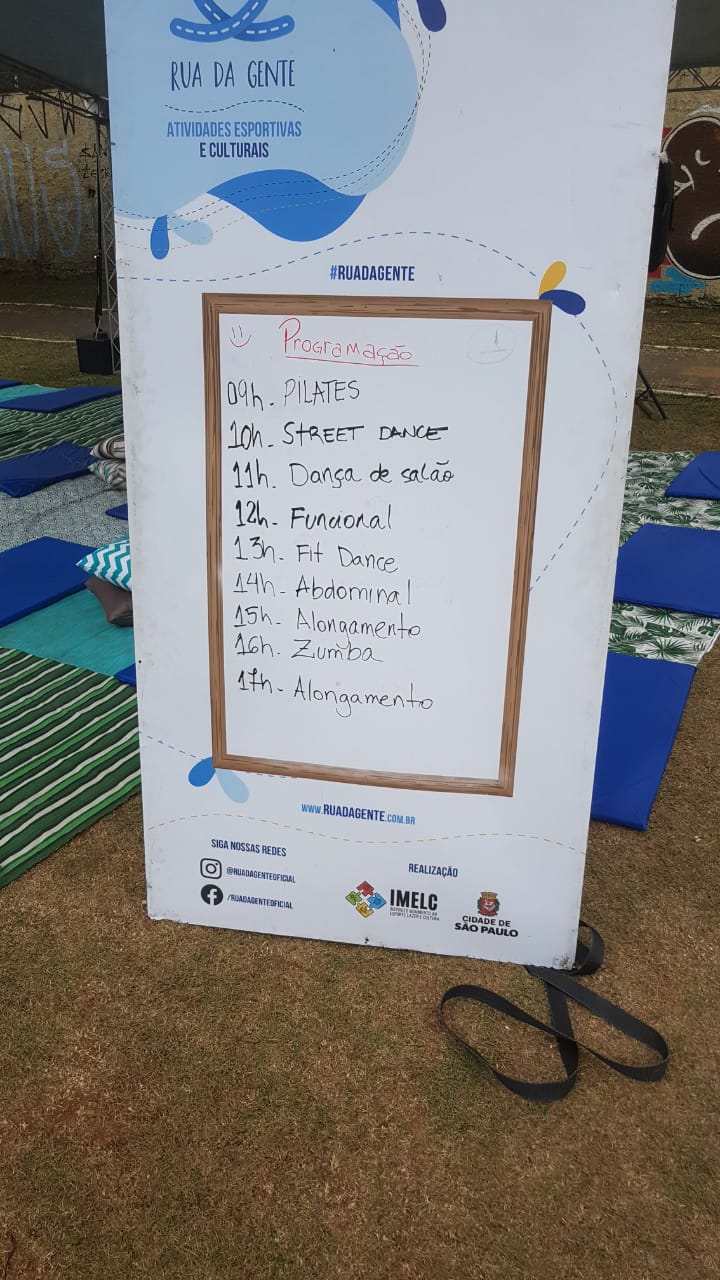 RUA DA GENTE
ATIVIDADES ESPORTIVAS
E CULTURAIS
#RUADAGENTE
Programação
1
09h. PILATES
10h. STREET DANCE
11h. Dança de salão
12h. Funcional
13h. Fit Dance
14h. Abdominal
15h. Alongamento
16h. Zumba
17h. Alongamento
WWW.RUADAGENTE.COM.BR
SIGA NOSSAS REDES
@RUADAGENTEOFICIAL
/RUADAGENTEOFICIAL
REALIZAÇÃO
IMELC
INSTITUTO MOVIMENTO AO
ESPORTE, LAZER E CULTURA
CIDADE DE
SÃO PAULO